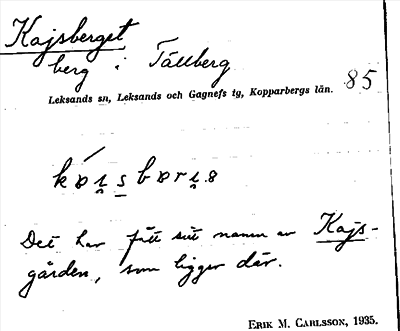 Kajsberget
berg i Tällberg
85
Leksands sn, Leksands och Gagnefs tg, Kopparbergs län.
Det har fått sitt namn av Kajs-
gården, som ligger där.
ERIK M. CARLSSON, 1935.